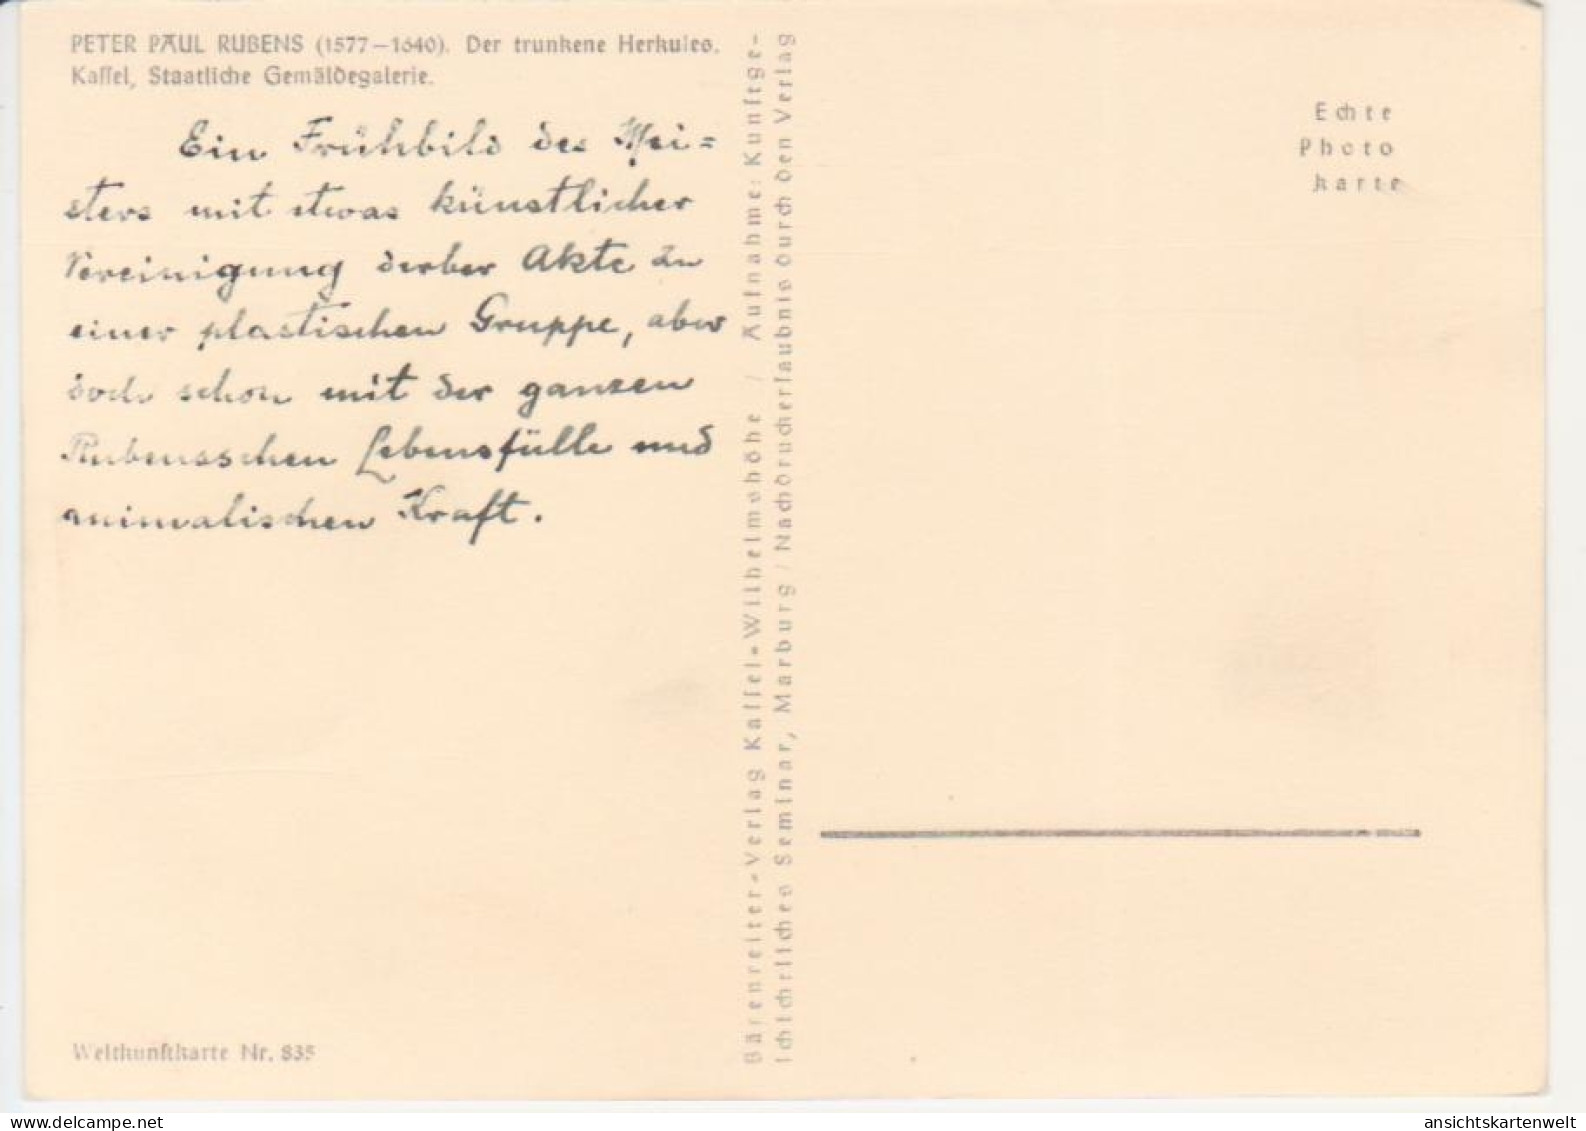 PETER PAUL RUBENS (1577–1640). Der trunkene Herkules.
Kaſſel, Staatliche Gemäldegalerie.
Ein Frühbild des Mei=
sters mit etwas künstlicher
Vereinigung derber Akte zu
einer plastischen Gruppe, aber
doch schon mit der ganzen
Rubensschen Lebensfülle und
animalischen Kraft.
Weltkunſtkarte Nr. 835
Bärenreiter-Verlag Kaſſel-Wilhelmshöhe / Aufnahme: Kunſtge-
ſchichtliches Seminar, Marburg / Nachdruckerlaubnis durch den Verlag
Echte
Photo
karte
ansichtskartenwelt
www.delcampe.net